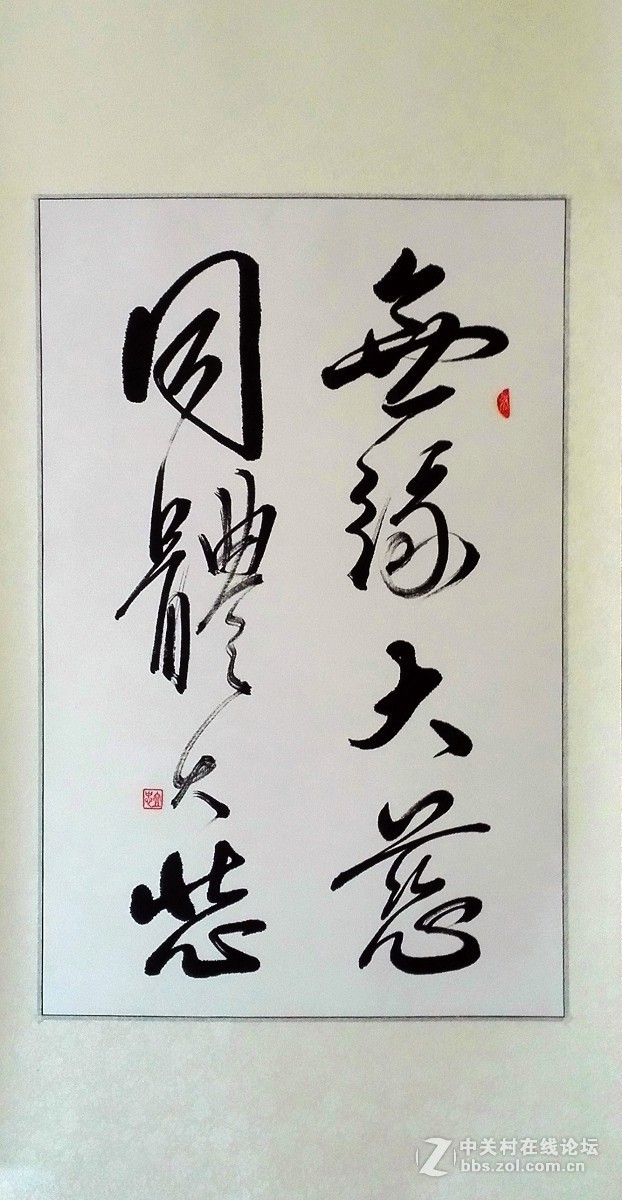 無緣大慈
同體大悲
中关村在线论坛
bbs.zol.com.cn